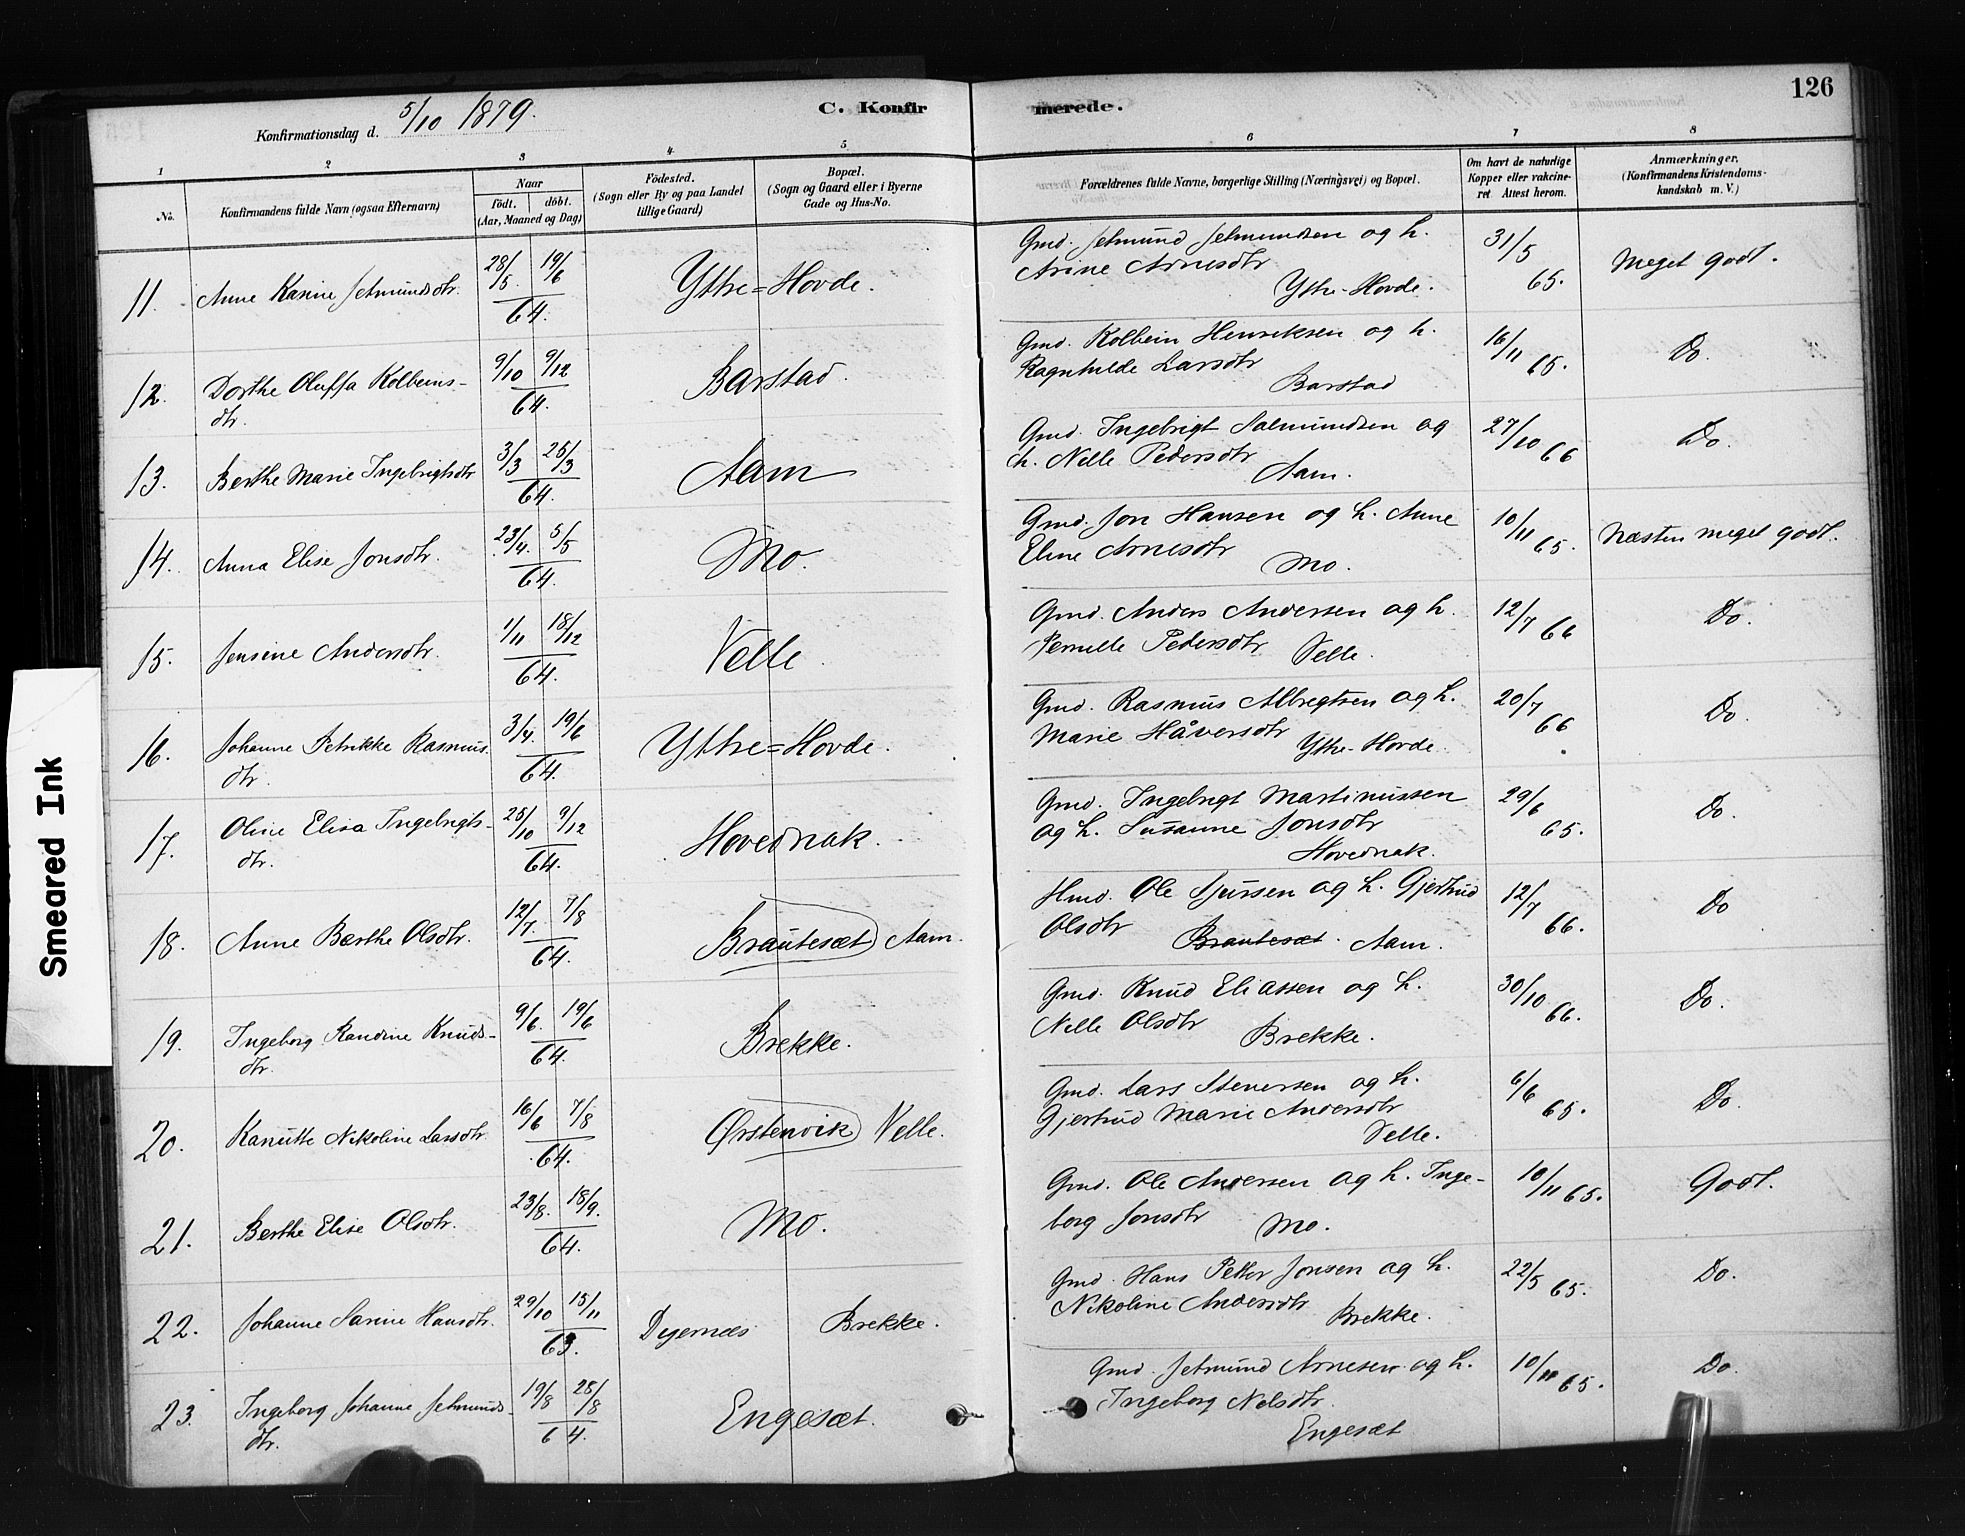 126
C. Konfirmerede.
Konfirmationsdag d. 5/10 1879.
1 2 3 4 5 6 7 8
No.
Konfirmandens fulde Navn (ogsaa Efternavn)
Naar
födt. döbt.
(Aar, Maaned og Dag)
Födested.
(Sogn eller By og paa Landet
tillige Gaard)
Bopæl.
(Sogn og Gaard eller i Byerne
Gade og Hus-No.
Forældrenes fulde Navne, borgerlige Stilling (Næringsvei) og Bopæl.
Om havt de naturlige
Kopper eller vakcine-
ret Attest herom.
Anmærkninger.
(Konfirmandens Kristendoms-
kundskab m. V.)
11. Anne Karine Jetmundsdtr. 28/5. 19/6 64. Ytre=Hovde. Gmd. Jetmund Jetmundsen og h. 31/5 65. Meget godt.
Arine Arnesdtr
Ytre-Hovde.
12. Dorthe Oluffa Kolbeins- 9/10 9/12 64. Barstad. Gmd. Kolbein Henriksen og h. 16/11 65. Do.
dtr. Ragnhilde Larsdtr
Barstad
13. Berthe Marie Ingebrigtsdtr 3/3 25/3 64. Aam Gmd. Ingebrigt Salmundsen og 27/10 66 Do.
h. Nelle Pedersdtr
Aam.
14. Anna Elise Jonsdtr. 23/4. 5/5 64. Mo. Gmd. Jon Hansen og h. Anne 10/11 65. Næsten meget godt.
Eline Arnesdtr
Mo.
15. Jensine Andersdtr. 1/11 18/12 64. Velle. Gmd. Anders Andersen og h. 12/7 66 Do.
Pernille Pedersdtr Velle.
16. Johanne Petrikke Rasmus- 3/4. 19/6 64. Ytre=Hovde. Gmd. Rasmus Albregtsen og h. 20/7 66 Do.
dtr. Marie Håversdtr
Ytre-Hovde.
17. Oline Elisa Ingebrigts- 25/10 9/12 64. Hovednak. Gmd. Ingebrigt Martinussen 29/6 65. Do.
dtr. og h. Susanne Jonsdtr
Hovednak.
18. Anne Berthe Olsdtr. 12/7. 7/8 64. Brautesæt Aam. Hmd. Ole Sjursen og h. Gjertrud 12/7 66. Do
Olsdtr Brautesæt. Aam.
19. Ingeborg Randine Knuds- 9/6. 19/6 64. Brekke. Gmd. Knud Eliassen og h. 30/10 66. Do.
dtr. Nelle Olsdtr
Brekke.
20. Kanutte Nikoline Larsdtr 16/6 7/8 64. Ørstenvik Velle. Gmd. Lars Steversen og h. 6/6 65. Do.
Gjertrud Marie Andersdtr
Velle.
21. Berthe Elise Olsdtr. 23/8. 18/9. 64. Mo. Gmd. Ole Andersen og h. Inge- 10/11 65. Godt.
borg Jonsdtr Mo.
22. Johanne Sarine Hansdtr. 29/10 15/11 63. Digernæs Brekke. Gmd. Hans Petter Jonsen og h. 22/5 65. Do.
Nikoline Andersdtr
Brekke.
23. Ingeborg Johanne Jetmunds- 19/8 28/8 64. Engesæt. Gmd. Jetmund Arnesen og h. 10/11 65. Do.
dtr. Ingeborg Nelsdtr.
Engesæt
Smeared Ink